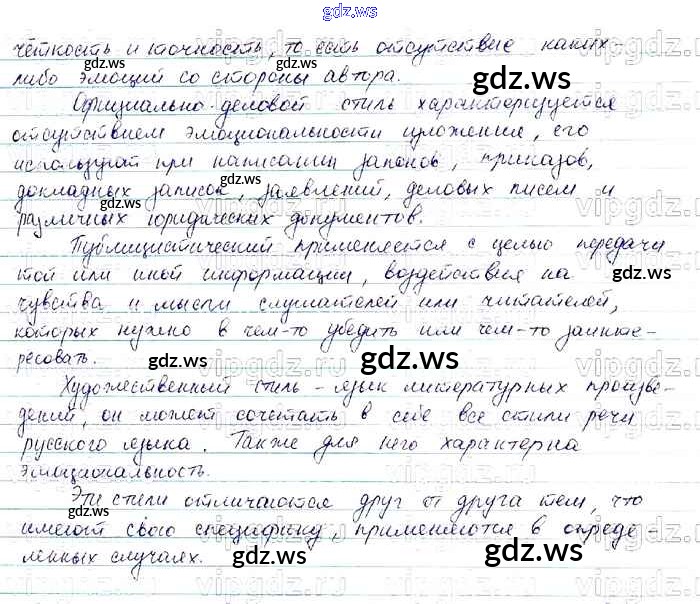 gdz.ws
чёткость и точность, то есть отсутствие каких-
либо эмоций со стороны автора.
Официально-деловой стиль характеризуется
отсутствием эмоциональности изложения, его
используют при написании законов, приказов,
докладных записок, заявлений, деловых писем и
различных юридических документов.
Публицистический применяется с целью передачи
той или иной информации, воздействия на
чувства и мысли слушателей или читателей,
которых нужно в чём-то убедить или чем-то заинте-
ресовать.
Художественный стиль - язык литературных произве-
дений, он может сочетать в себе все стили речи
русского языка. Также для него характерна
эмоциональность.
Эти стили отличаются друг от друга тем, что
имеют свою специфику, применяются в опреде-
лённых случаях.